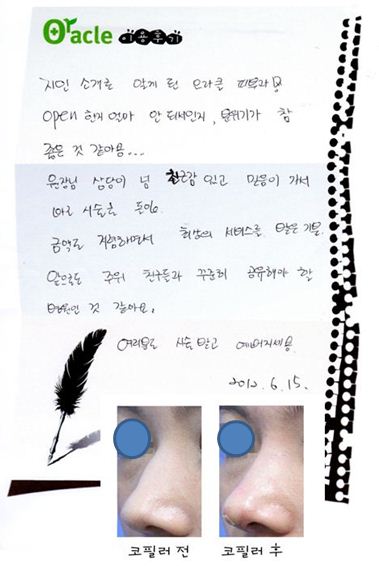 Oracle 이용후기
지인 소개로 알게 된 오라클 피부과
open 한지 얼마 안 되서인지, 분위기가 참
좋은 것 같아요...
원장님 상담이 넘 친근감 있고 믿음이 가서
바로 시술을
금액도 저렴하면서 최상의 서비스를 받은 기분.
앞으로도 주위 친구들과 꾸준히 공유해야 할
병원인 것 같아요.
여러분도 시술 받고 예뻐지세용.
2012. 6. 15.
코필러 전 코필러 후